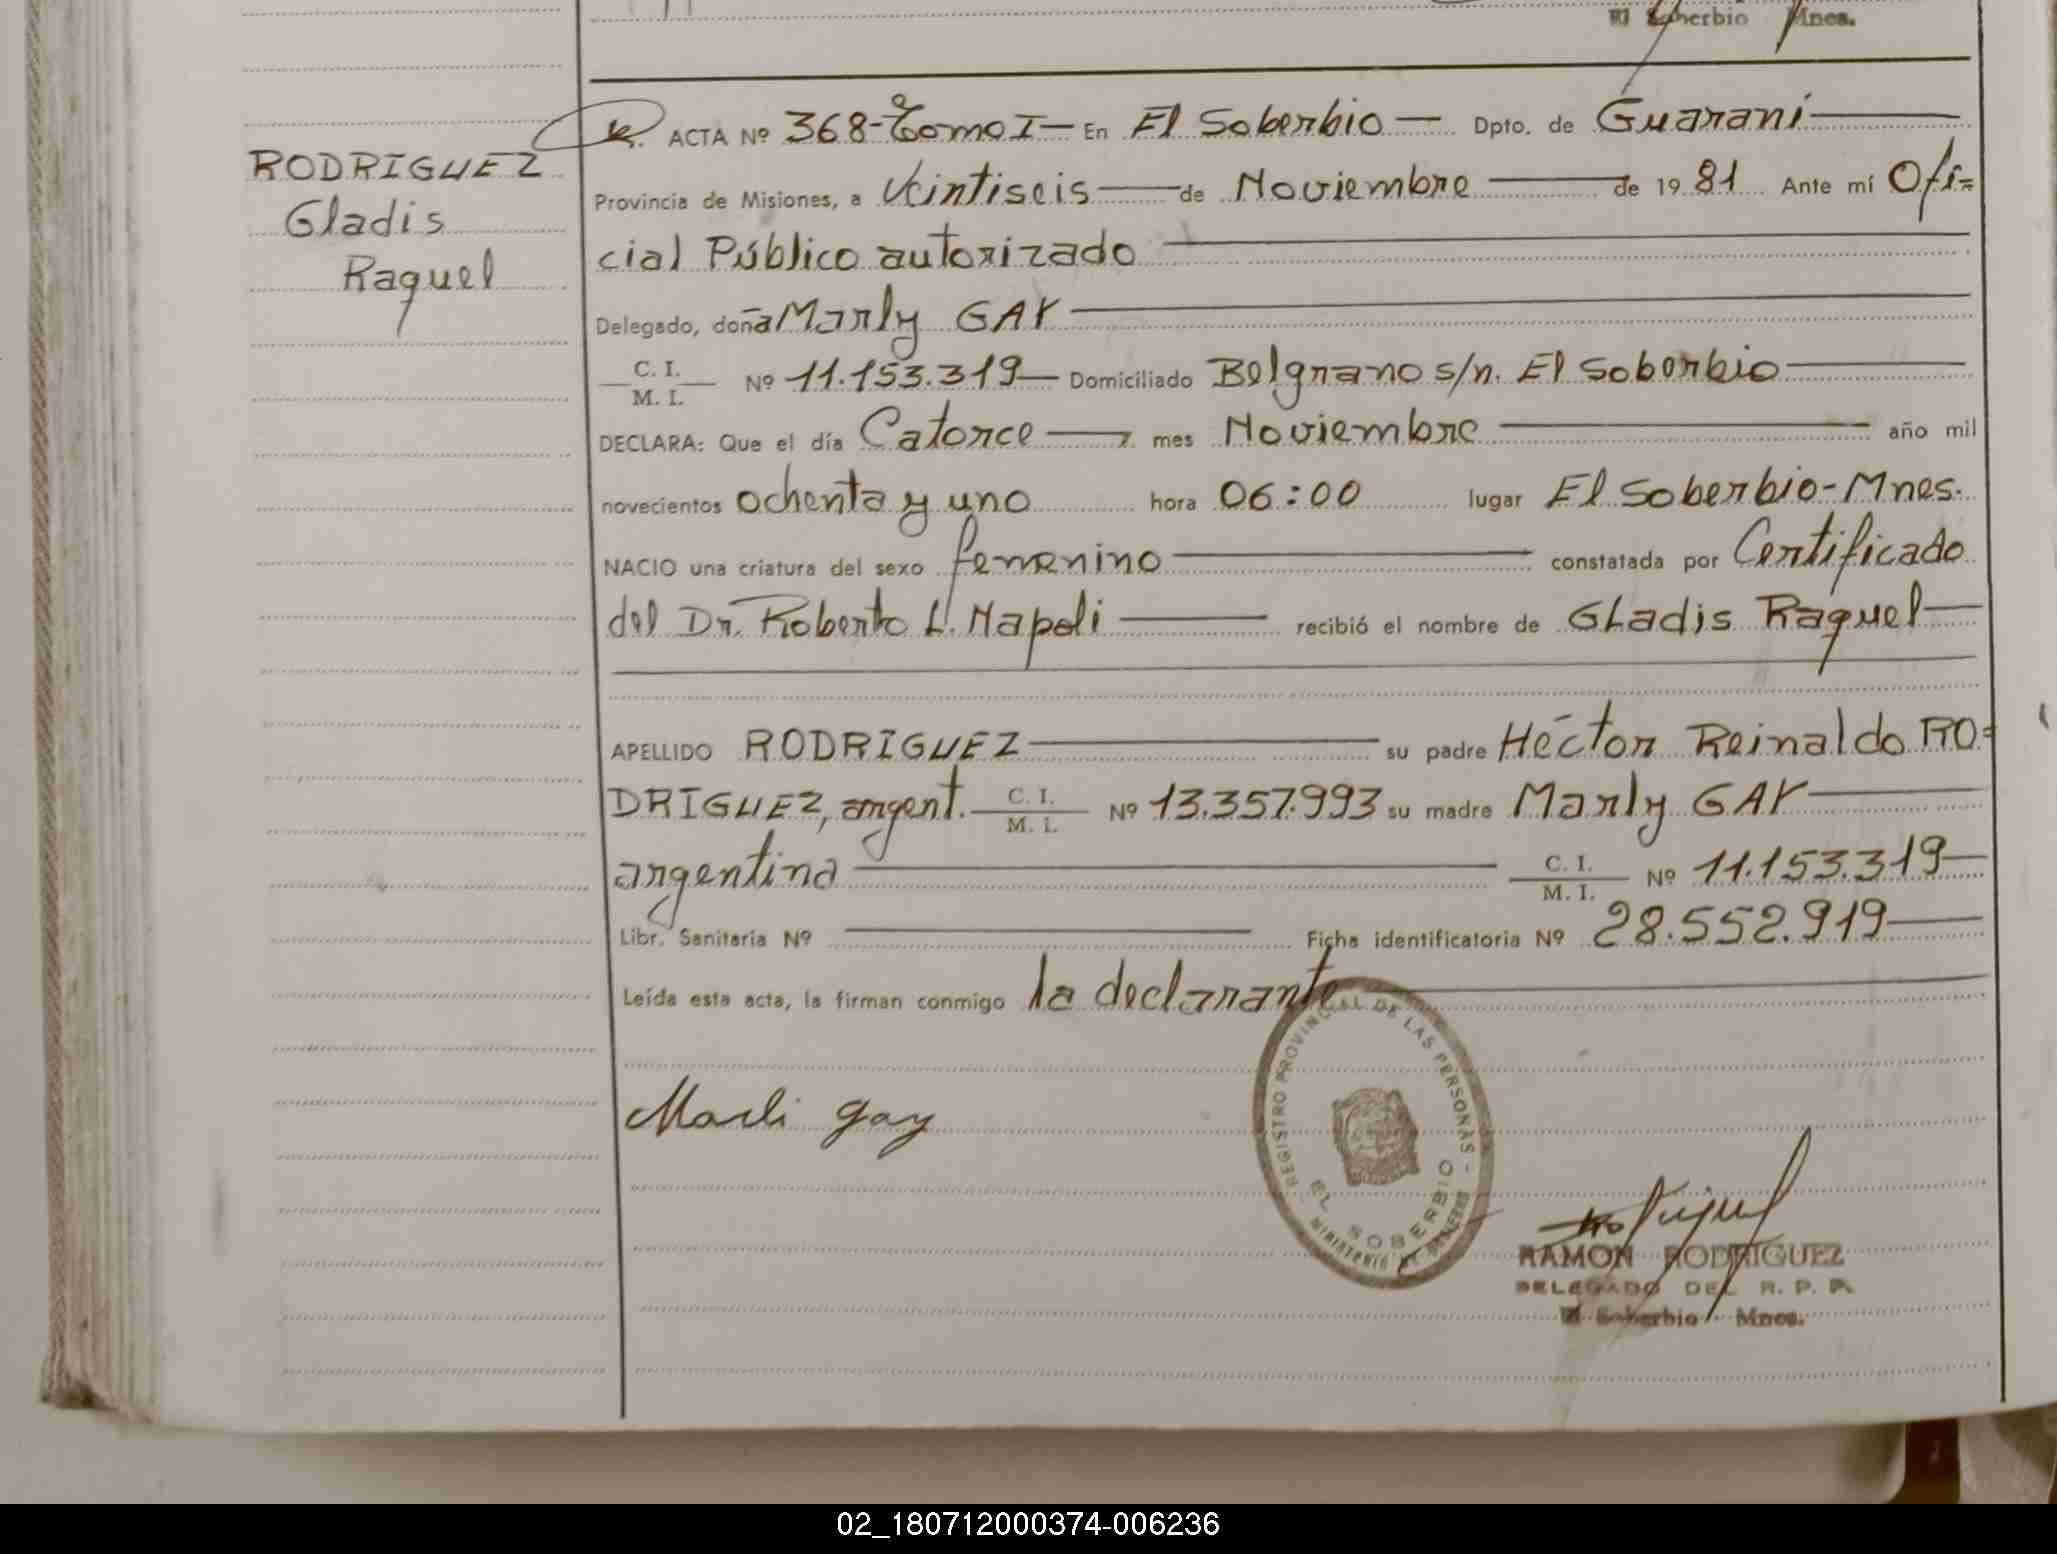 El Soberbio Mnes.
RODRIGUEZ
Gladis
Raquel
ACTA Nº 368-Tomo I- En El Soberbio - Dpto. de Guaraní
Provincia de Misiones, a Veintiseis de Noviembre de 1981 Ante mí Ofi=
cial Público autorizado
Delegado, doña Marly GAY
C. I.
M. I. Nº 11.153.319 Domiciliado Belgrano s/n. El Soberbio
DECLARA: Que el día Catorce mes Noviembre año mil
novecientos ochenta y uno hora 06:00 lugar El Soberbio-Mnes.
NACIO una criatura del sexo femenino constatada por Certificado
del Dr. Roberto L. Napoli recibió el nombre de Gladis Raquel
APELLIDO RODRIGUEZ su padre Héctor Reinaldo RO=
DRIGUEZ, argent. C. I. M. I. Nº 13.357.993 su madre Marly GAY
argentina C. I. M. I. Nº 11.153.319
Libr. Sanitaria Nº Ficha identificatoria Nº 28.552.919
Leída esta acta, la firman conmigo la declarante
Marli Gay
REGISTRO PROVINCIAL DE LAS PERSONAS -
EL SOBERBIO
MINISTERIO DE
RAMON RODRIGUEZ
DELEGADO DEL R. P. P.
El Soberbio Mnes.
02_180712000374-006236